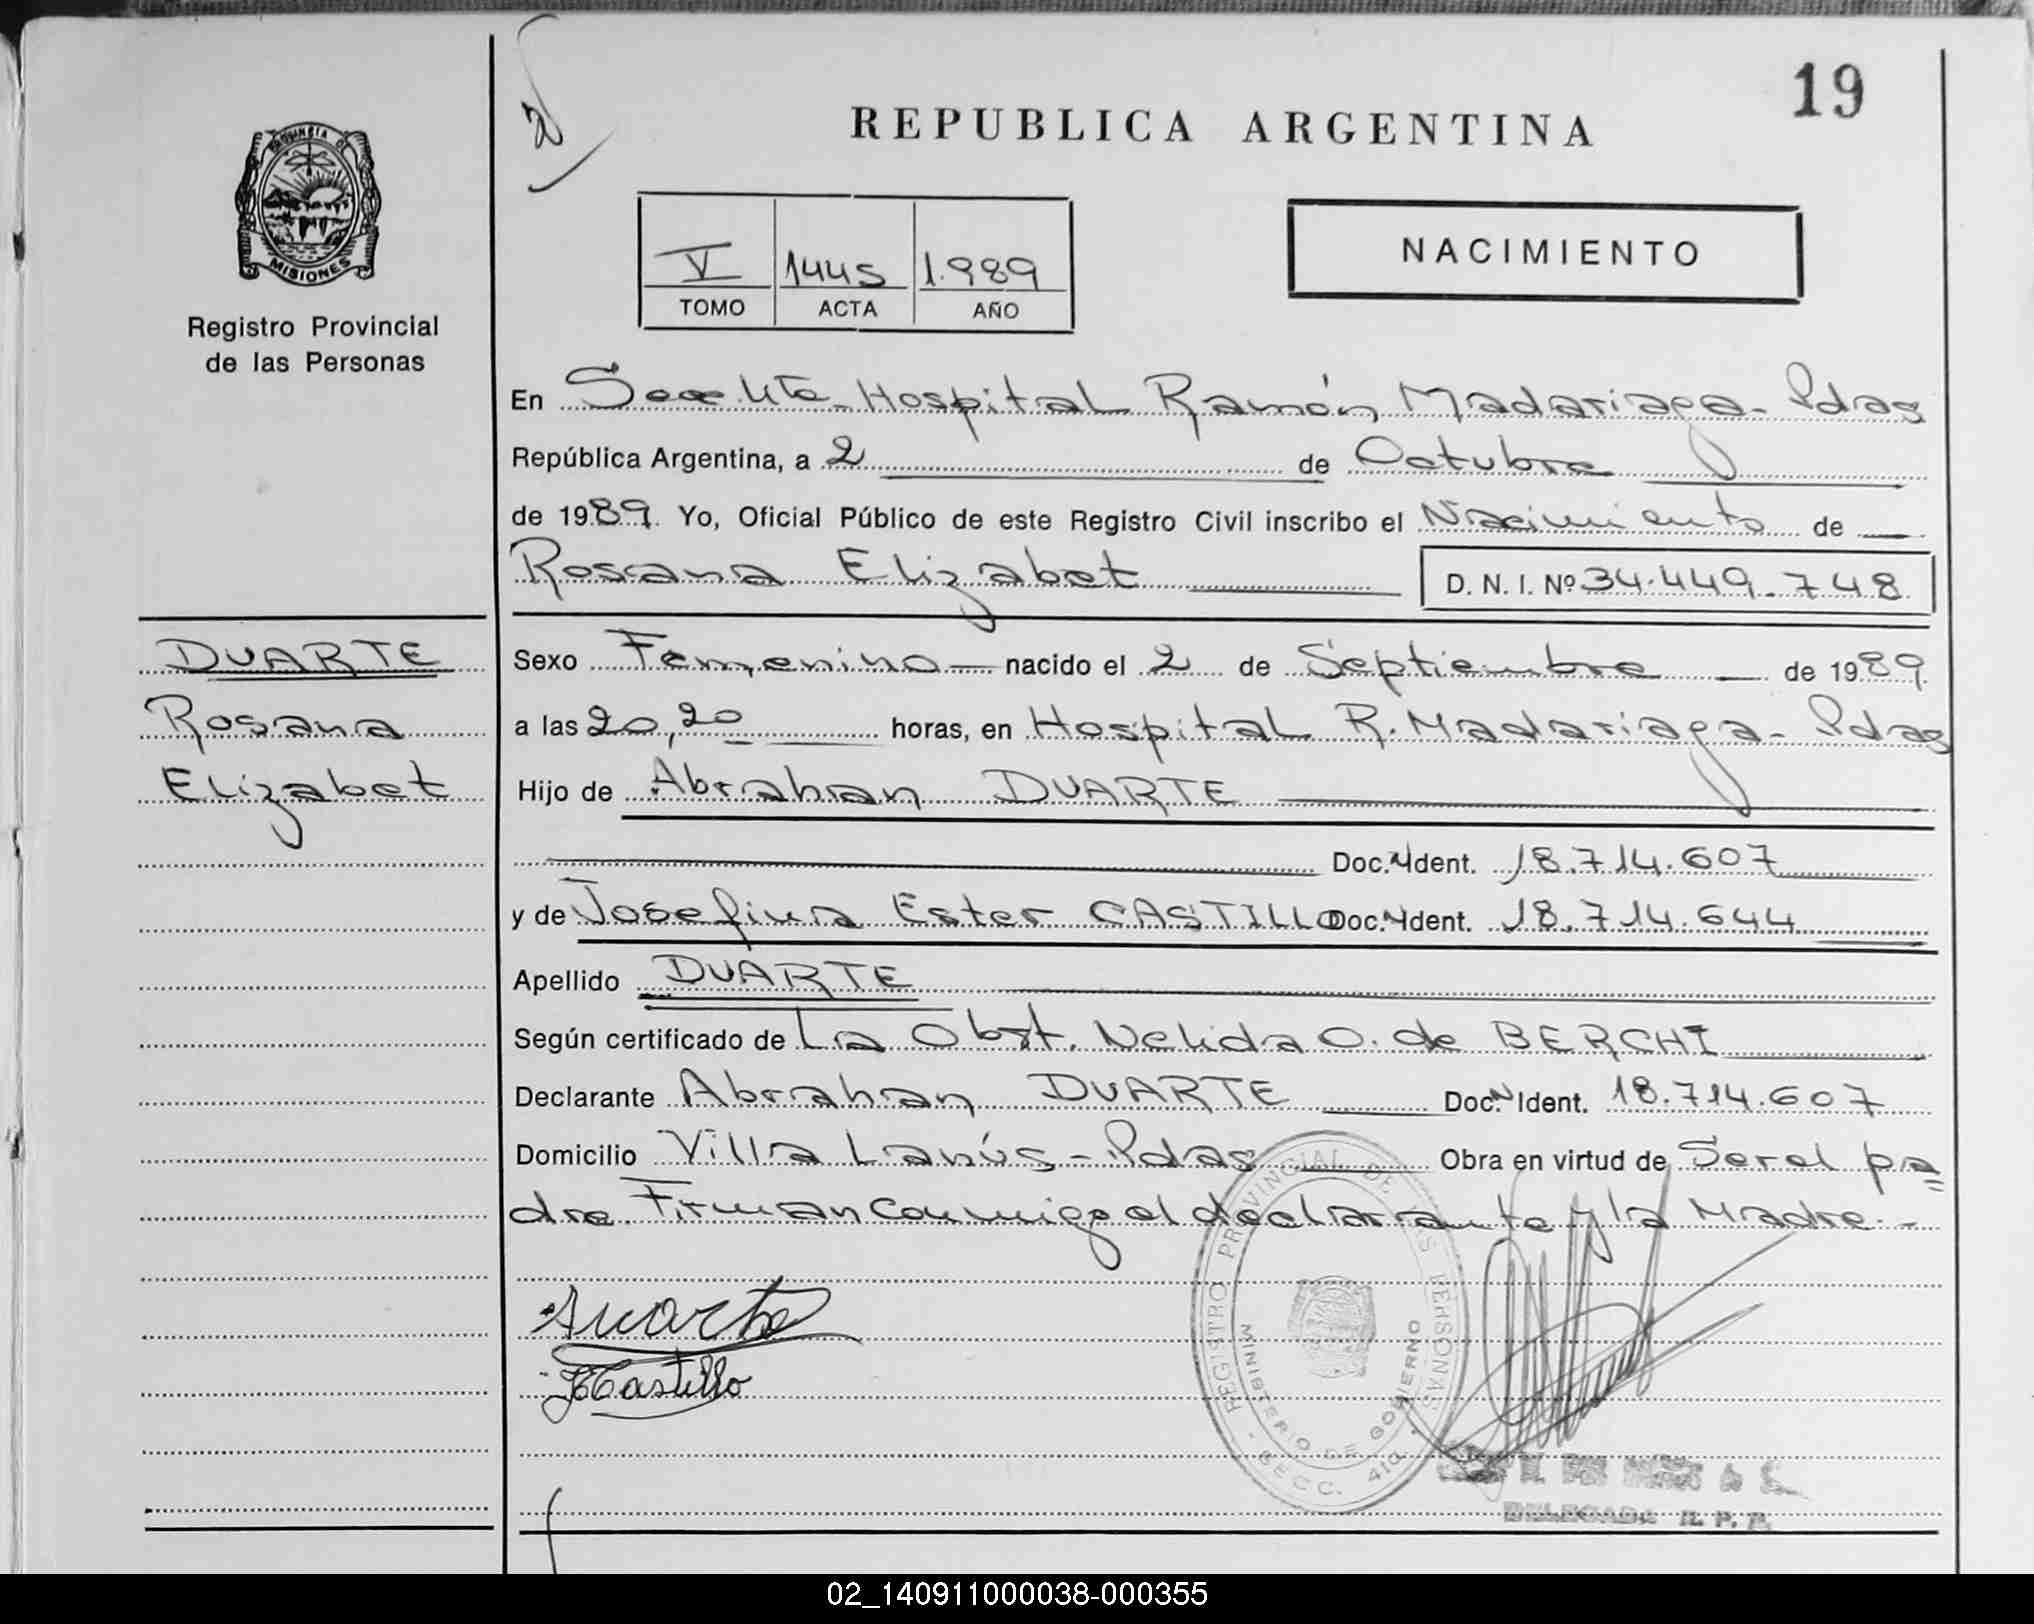 19
REPUBLICA ARGENTINA
PROVINCIA DE
MISIONES
Registro Provincial
de las Personas
V 1445 1.989
TOMO ACTA AÑO
NACIMIENTO
En Hospital Ramón Madariaga - Pdas
República Argentina, a 2 de Octubre
de 1989. Yo, Oficial Público de este Registro Civil inscribo el Nacimiento de
Rosana Elizabet D. N. I. Nº 34.449.748
DUARTE
Rosana
Elizabet
Sexo Femenino nacido el 2 de Septiembre de 1989
a las 20,20 horas, en Hospital R. Madariaga - Pdas
Hijo de Abrahan DUARTE
Doc. N Ident. 18.714.607
y de Josefina Ester CASTILLO Doc. N Ident. 18.714.644
Apellido DUARTE
Según certificado de La Obst. Nelida O. de BERCHI
Declarante Abrahan DUARTE Doc. N Ident. 18.714.607
Domicilio Villa Lanús - Pdas Obra en virtud de Ser el pa=
dre. Firman conmigo el declarante y la Madre.-
Duarte
Castillo
REGISTRO PROVINCIAL DE LAS PERSONAS
MINISTERIO DE GOBIERNO
SECC. 410
DELEGADA R. P. P.
02_140911000038-000355